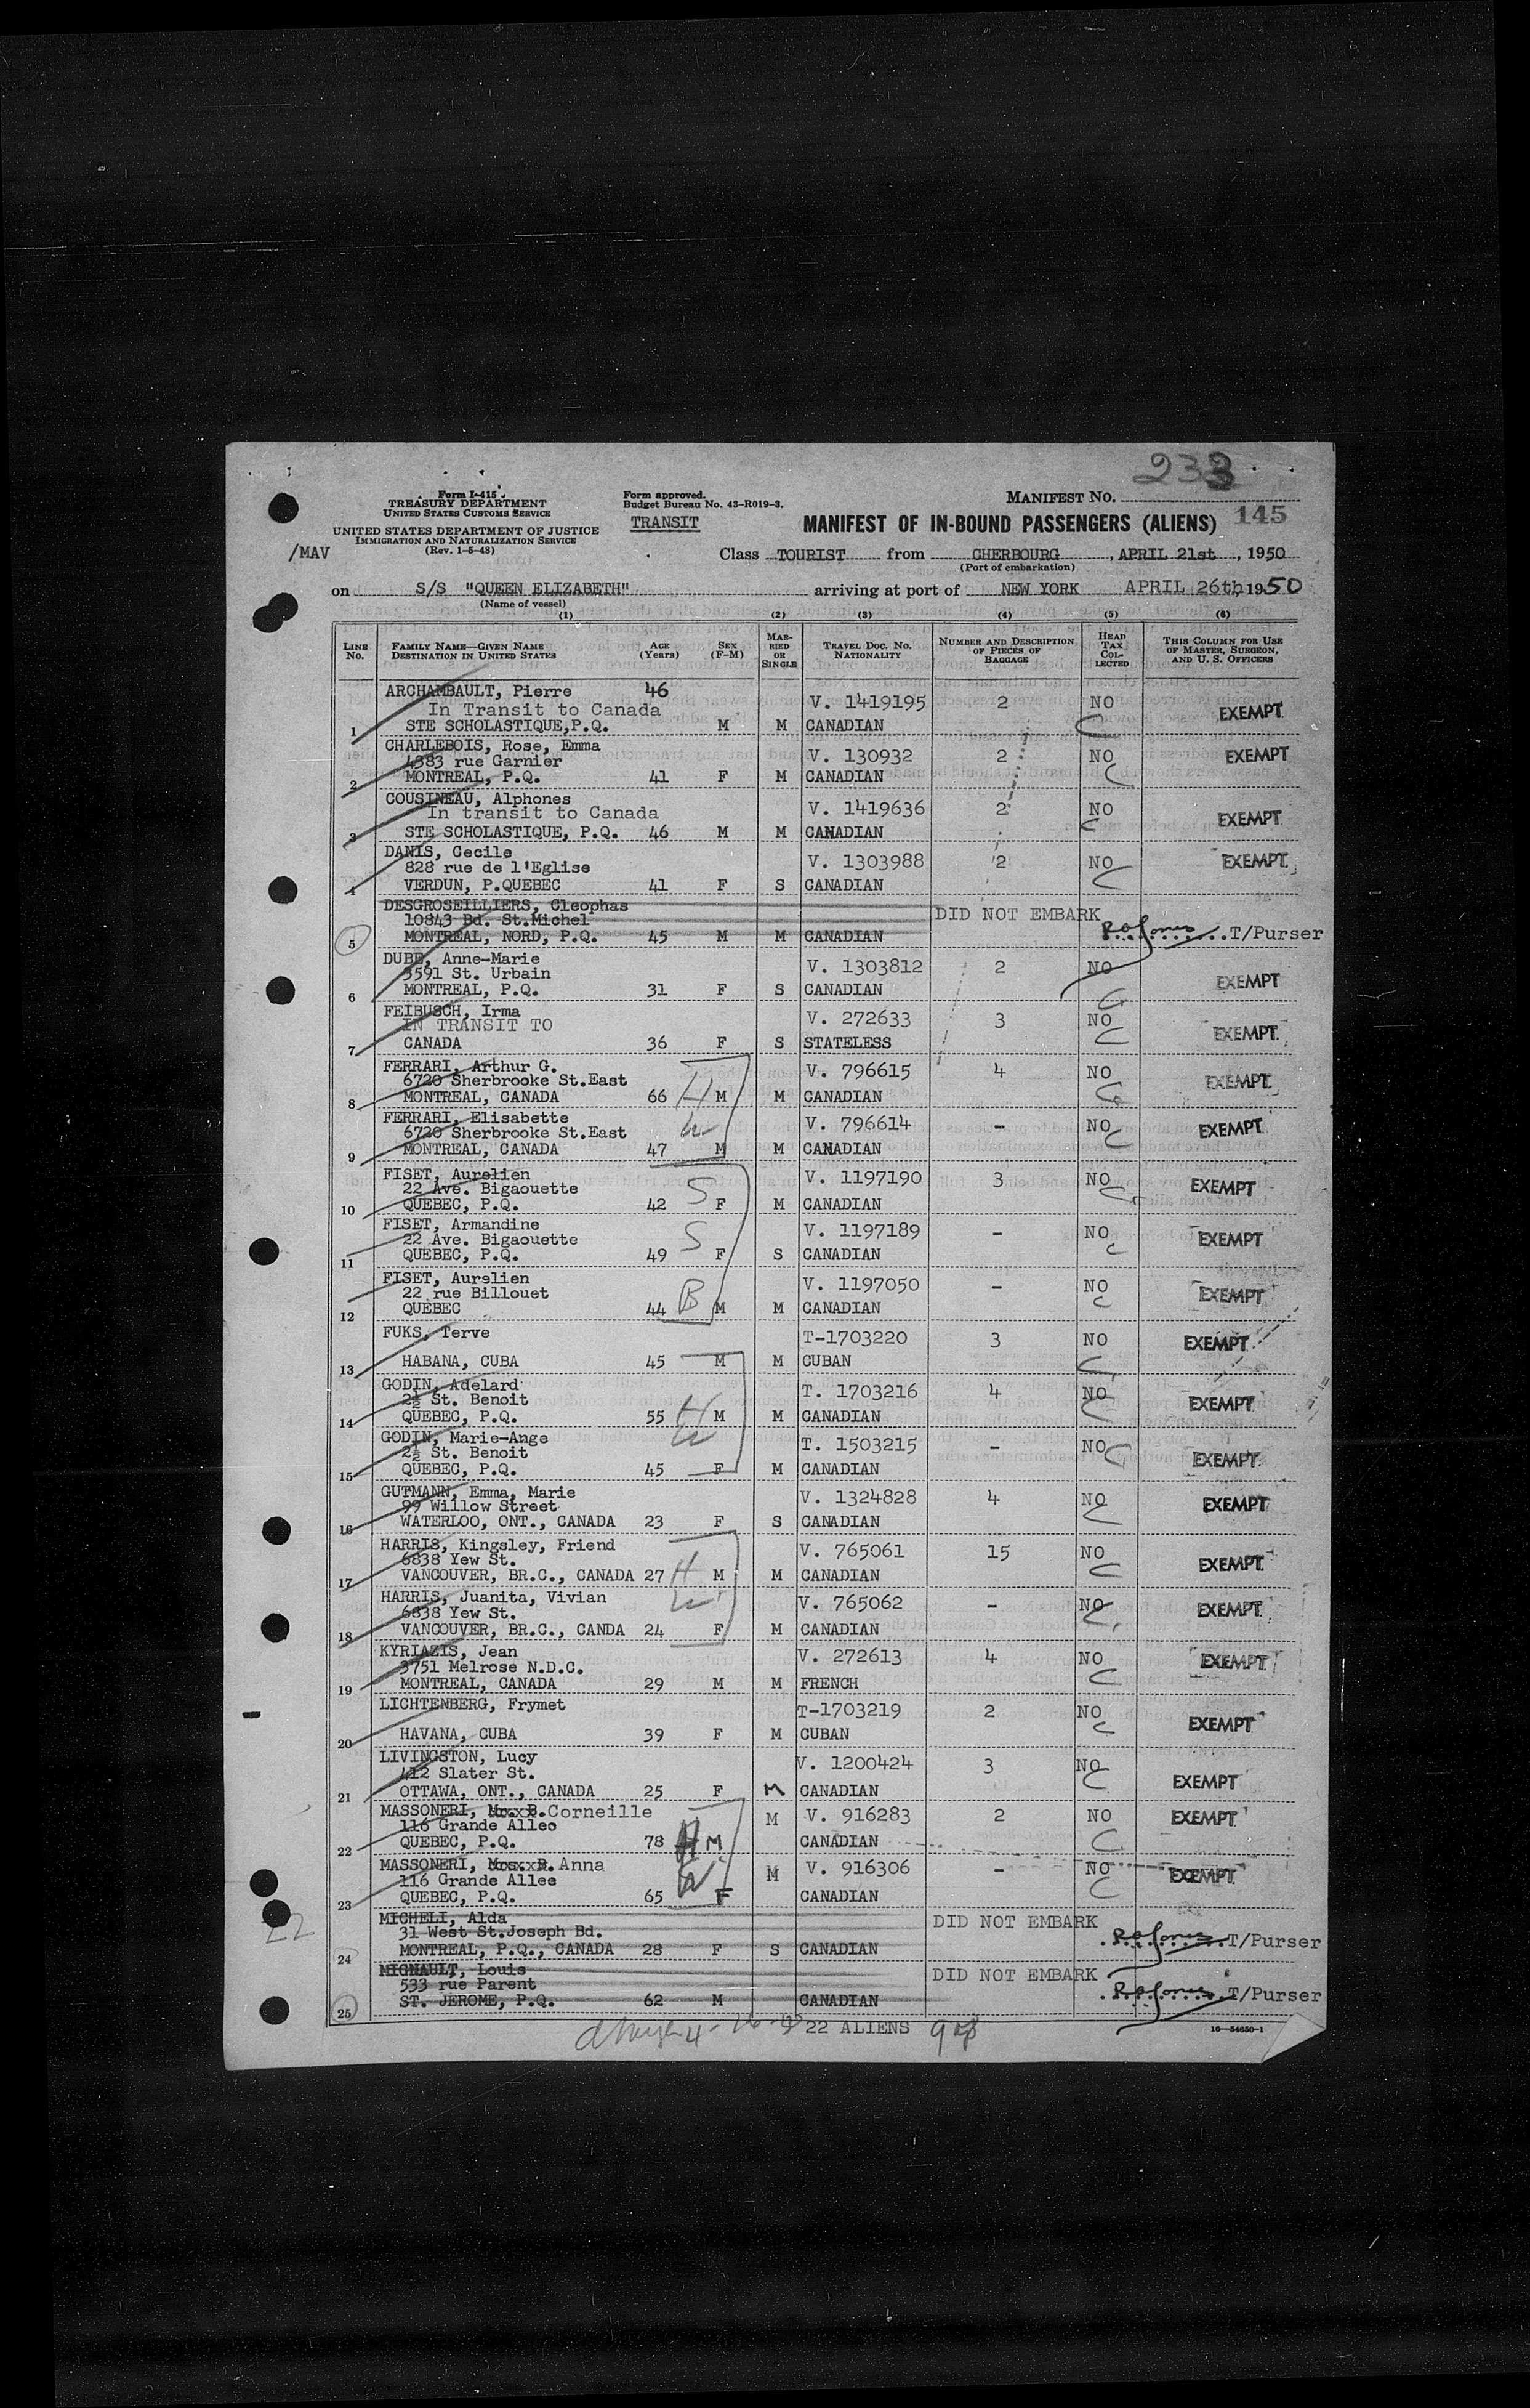 233
Form I-415
TREASURY DEPARTMENT
UNITED STATES CUSTOMS SERVICE
UNITED STATES DEPARTMENT OF JUSTICE
IMMIGRATION AND NATURALIZATION SERVICE
(Rev. 1-5-48)
/MAV
Form approved.
Budget Bureau No. 43-R019-3.
TRANSIT
MANIFEST NO.
MANIFEST OF IN-BOUND PASSENGERS (ALIENS) 145
Class TOURIST from CHERBOURG, APRIL 21st, 1950
(Port of embarkation)
on S/S "QUEEN ELIZABETH" arriving at port of NEW YORK APRIL 26th, 1950
(Name of vessel)
(1) (2) (3) (4) (5) (6)
LINE NO. FAMILY NAME—GIVEN NAME DESTINATION IN UNITED STATES AGE (Years) SEX (F-M) MARRIED OR SINGLE TRAVEL DOC. NO. NATIONALITY NUMBER AND DESCRIPTION OF PIECES OF BAGGAGE HEAD TAX COLLECTED THIS COLUMN FOR USE OF MASTER, SURGEON, AND U. S. OFFICERS
ARCHAMBAULT, Pierre 46
In Transit to Canada V. 1419195 2 NO EXEMPT
1 STE SCHOLASTIQUE,P.Q. M M CANADIAN C
CHARLEBOIS, Rose, Emma
4383 rue Garnier V. 130932 2 NO EXEMPT
2 MONTREAL, P.Q. 41 F M CANADIAN C
COUSINEAU, Alphones
In transit to Canada V. 1419636 2 NO EXEMPT
3 STE SCHOLASTIQUE, P.Q. 46 M M CANADIAN C
DANIS, Cecile
828 rue de l'Eglise V. 1303988 2 NO EXEMPT
4 VERDUN, P.QUEBEC 41 F S CANADIAN C
DESGROSEILLIERS, Cleophas
10843 Bd. St.Michel DID NOT EMBARK
5 MONTREAL, NORD, P.Q. 45 M M CANADIAN T/Purser
DUBE, Anne-Marie
3591 St. Urbain V. 1303812 2 NO EXEMPT
6 MONTREAL, P.Q. 31 F S CANADIAN C
FEIBUSCH, Irma
IN TRANSIT TO V. 272633 3 NO EXEMPT
7 CANADA 36 F S STATELESS C
FERRARI, Arthur G.
6720 Sherbrooke St.East V. 796615 4 NO EXEMPT
8 MONTREAL, CANADA 66 H M M CANADIAN C
FERRARI, Elisabette
6720 Sherbrooke St.East W V. 796614 - NO EXEMPT
9 MONTREAL, CANADA 47 M M CANADIAN C
FISET, Aurelien
22 Ave. Bigaouette S V. 1197190 3 NO EXEMPT
10 QUEBEC, P.Q. 42 F M CANADIAN C
FISET, Armandine
22 Ave. Bigaouette S V. 1197189 - NO EXEMPT
11 QUEBEC, P.Q. 49 F S CANADIAN C
FISET, Aurelien
22 rue Billouet V. 1197050 - NO EXEMPT
12 QUEBEC 44 B M M CANADIAN C
FUKS, Terve T-1703220 3 NO EXEMPT
13 HABANA, CUBA 45 M M CUBAN C
GODIN, Adelard
2½ St. Benoit T. 1703216 4 NO EXEMPT
14 QUEBEC, P.Q. 55 H M M CANADIAN C
GODIN, Marie-Ange W
2½ St. Benoit T. 1503215 - NO EXEMPT
15 QUEBEC, P.Q. 45 F M CANADIAN C
GUTMANN, Emma, Marie
99 Willow Street V. 1324828 4 NO EXEMPT
16 WATERLOO, ONT., CANADA 23 F S CANADIAN C
HARRIS, Kingsley, Friend
6838 Yew St. V. 765061 15 NO EXEMPT
17 VANCOUVER, BR.C., CANADA 27 H M M CANADIAN C
HARRIS, Juanita, Vivian W
6838 Yew St. V. 765062 - NO EXEMPT
18 VANCOUVER, BR.C., CANDA 24 F M CANADIAN C
KYRIAZIS, Jean
3751 Melrose N.D.C. V. 272613 4 NO EXEMPT
19 MONTREAL, CANADA 29 M M FRENCH C
LICHTENBERG, Frymet T-1703219 2 NO EXEMPT
20 HAVANA, CUBA 39 F M CUBAN C
LIVINGSTON, Lucy
412 Slater St. V. 1200424 3 NO EXEMPT
21 OTTAWA, ONT., CANADA 25 F M CANADIAN C
MASSONERI, Corneille
116 Grande Allee M V. 916283 2 NO EXEMPT
22 QUEBEC, P.Q. 78 H M CANADIAN C
MASSONERI, Anna
116 Grande Allee W M V. 916306 - NO EXEMPT
23 QUEBEC, P.Q. 65 F CANADIAN C
22
MICHELI, Alda
31 West St.Joseph Bd. DID NOT EMBARK
24 MONTREAL, P.Q., CANADA 28 F S CANADIAN T/Purser
MIGNAULT, Louis
533 rue Parent DID NOT EMBARK
25 ST. JEROME, P.Q. 62 M CANADIAN T/Purser
22 ALIENS
16—54650-1